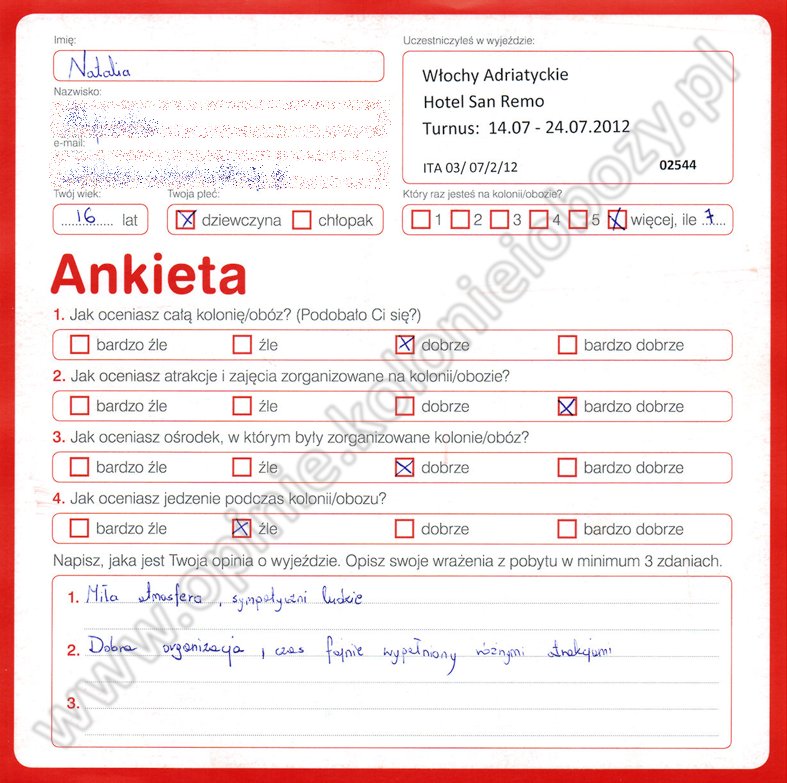 Imię:
Natalia
Nazwisko:
e-mail:
Twój wiek:
16 lat
Twoja płeć:
dziewczyna chłopak
Uczestniczyłeś w wyjeździe:
Włochy Adriatyckie
Hotel San Remo
Turnus: 14.07 - 24.07.2012
ITA 03/ 07/2/12 02544
Który raz jesteś na kolonii/obozie?
1 2 3 4 5 więcej, ile 7
Ankieta
1. Jak oceniasz całą kolonię/obóz? (Podobało Ci się?)
bardzo źle źle dobrze bardzo dobrze
2. Jak oceniasz atrakcje i zajęcia zorganizowane na kolonii/obozie?
bardzo źle źle dobrze bardzo dobrze
3. Jak oceniasz ośrodek, w którym były zorganizowane kolonie/obóz?
bardzo źle źle dobrze bardzo dobrze
4. Jak oceniasz jedzenie podczas kolonii/obozu?
bardzo źle źle dobrze bardzo dobrze
Napisz, jaka jest Twoja opinia o wyjeździe. Opisz swoje wrażenia z pobytu w minimum 3 zdaniach.
1. Miła atmosfera, sympatyczni ludzie
2. Dobra organizacja, czas fajnie wypełniony różnymi atrakcjami
3.
www.opinie.kolonieiobozy.pl